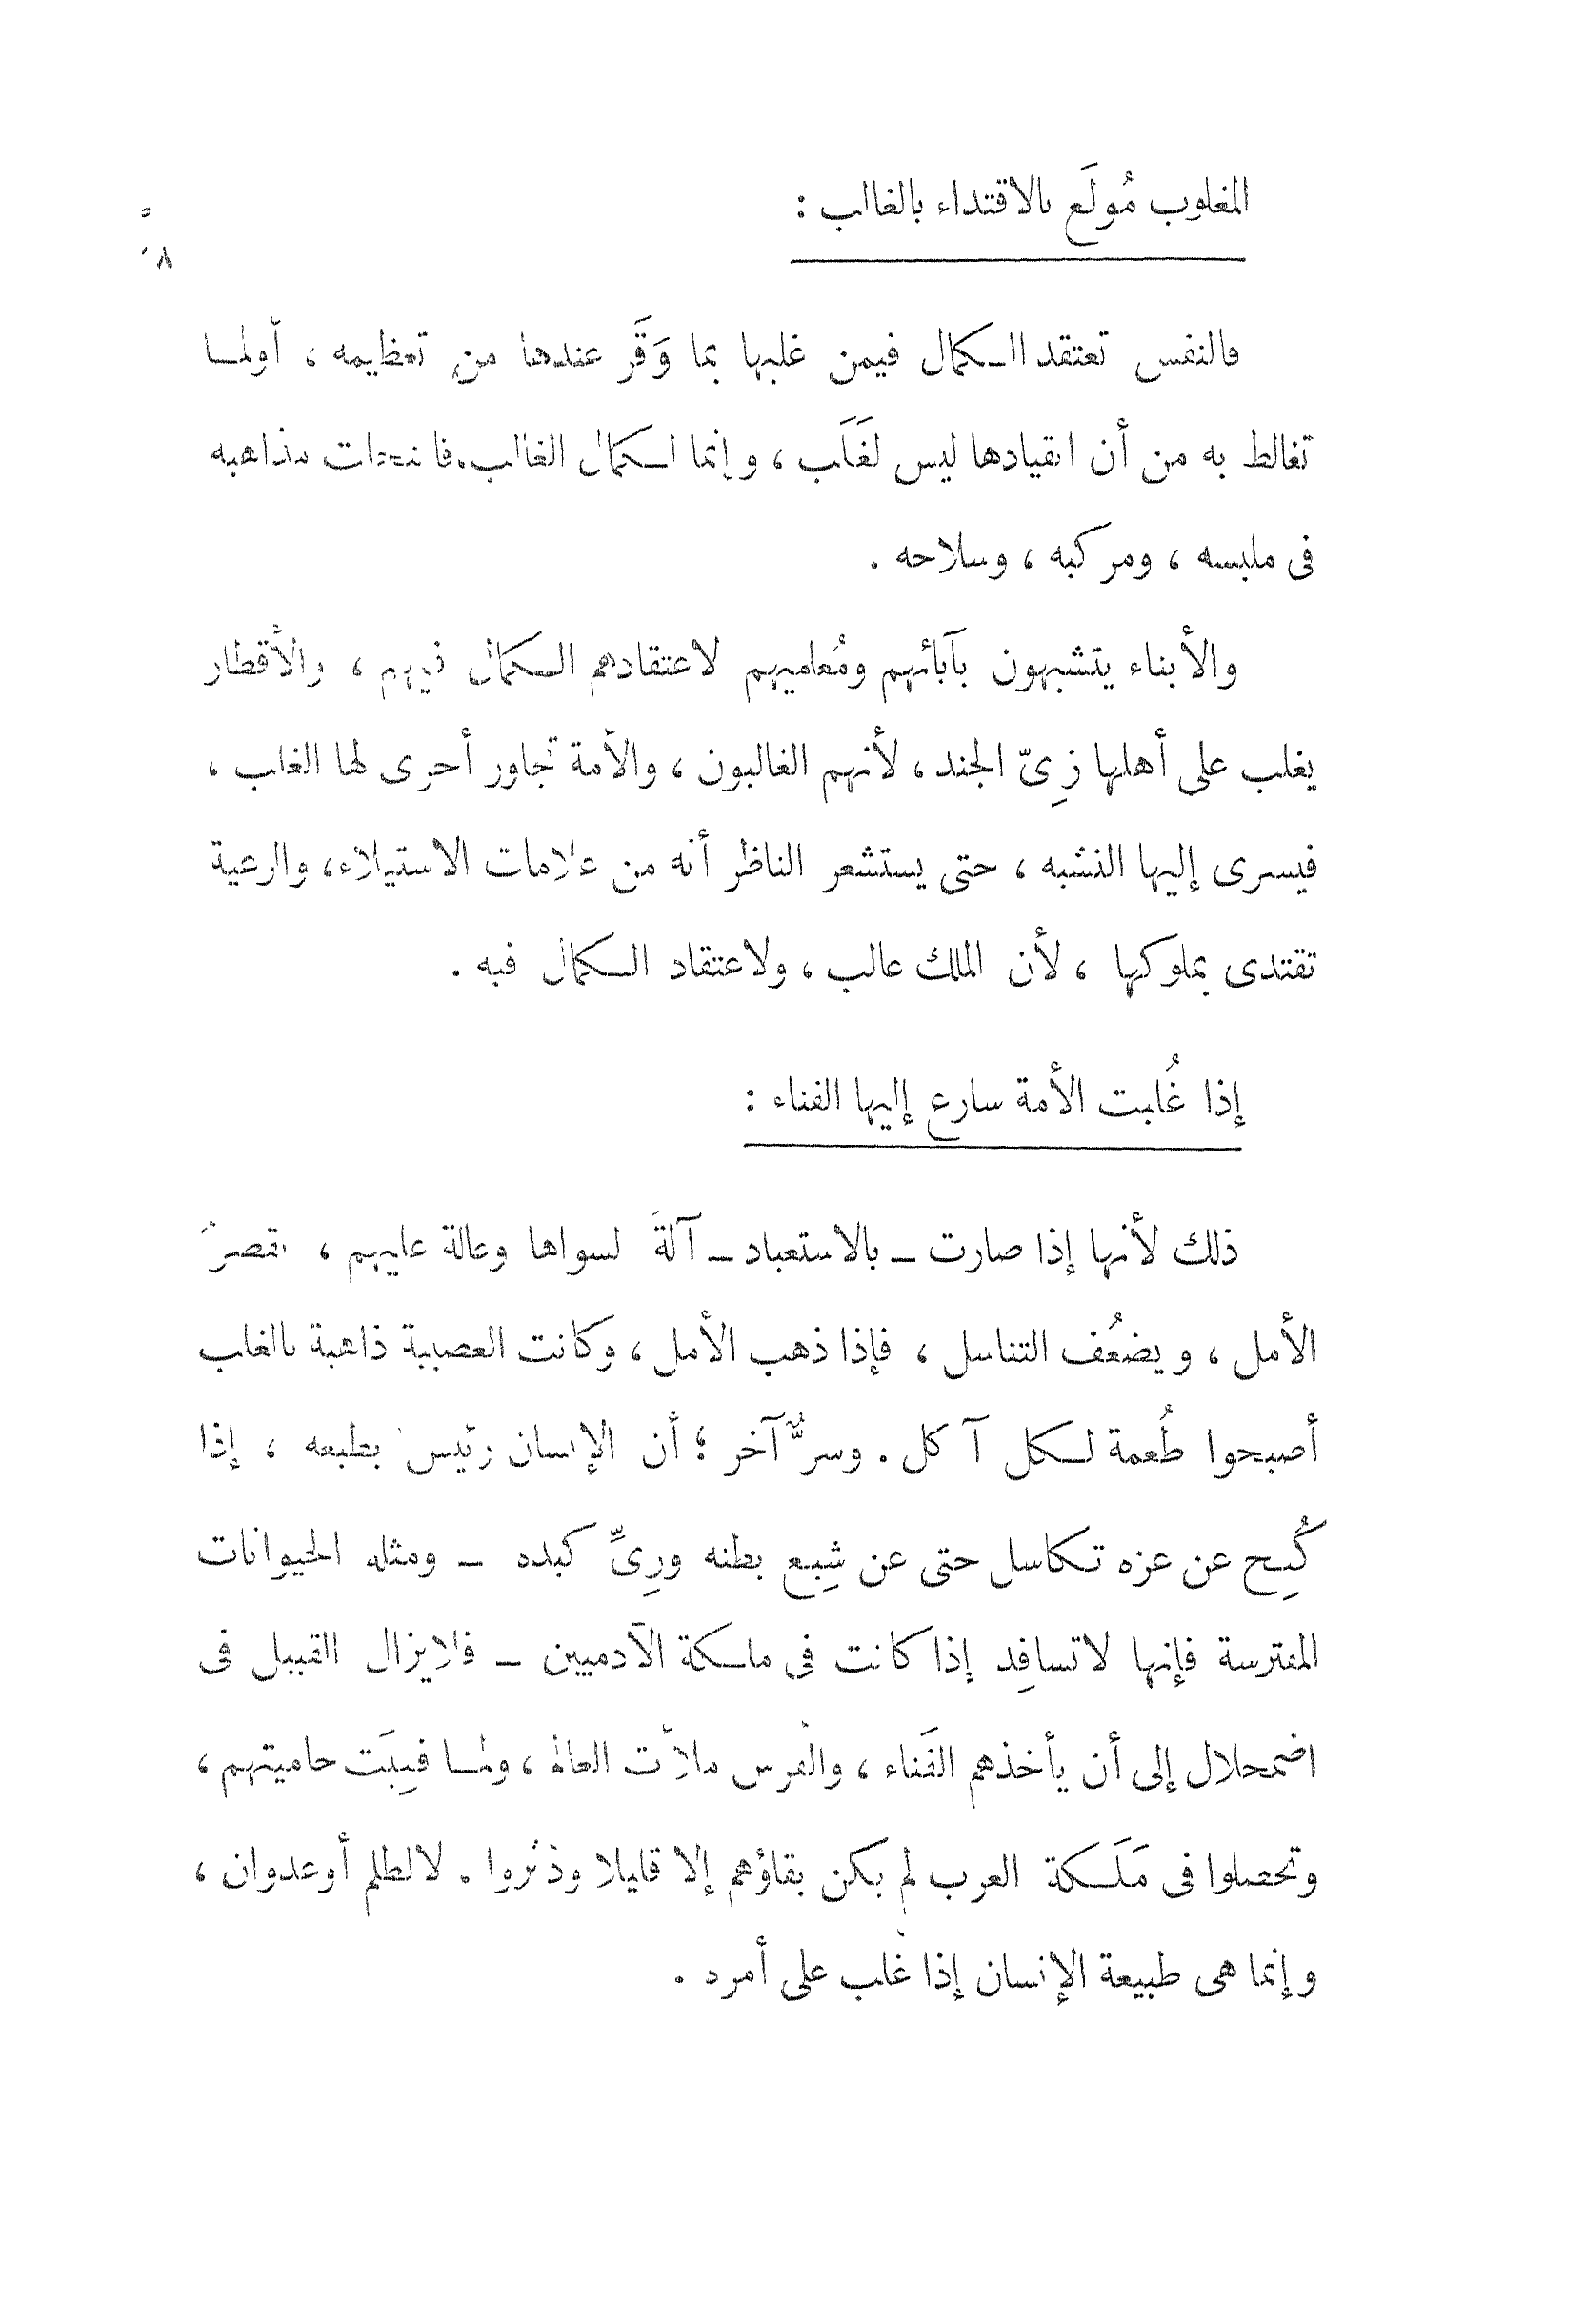 المغلوب مُولَع بالاقتداء بالغالب :
فالنفس تعتقد الكمال فيمن غلبها بما وَقَر عندها من تعظيمه ، أولما
تغالط به من أن انقيادها ليس لغَلَب ، وإنما لكمال الغالب . فانتحلت مذاهبه
فى ملبسه ، ومركبه ، وسلاحه .
والأبناء يتشبهون بآبائهم ومُعلميهم لاعتقادهم الكمال فيهم ، والأقطار
يغلب على أهلها زِىّ الجند ، لأنهم الغالبون ، والأمة تجاور أحرى لها الغلب ،
فيسرى إليها التشبه ، حتى يستشعر الناظر أنه من علامات الاستيلاء ، والرعية
تقتدى بملوكها ، لأن الملك غالب ، ولاعتقاد الكمال فيه .
إذا غُلبت الأمة سارع إليها الفناء :
ذلك لأنها إذا صارت – بالاستعباد – آلةَ لسواها وعالة عليهم ، يقصرُ
الأمل ، ويضعُف التناسل ، فإذا ذهب الأمل ، وكانت العصبية ذاهبة بالغلب
أصبحوا طُعمة لكل آكل . وسرٌّ آخر ؛ أن الإنسان رئيس بطبعه ، إذا
كُبِح عن عزه تكاسل حتى عن شِبع بطنه ورِىِّ كبده – ومثله الحيوانات
المفترسة فإنها لاتسافِد إذا كانت فى ملكة الآدميين – فلايزال القبيل فى
اضمحلال إلى أن يأخذهم الفَناء ، والفرس ملأت العالم ، ولما فنِيَت حاميتهم ،
وتحصلوا فى مَلَكة العرب لم يكن بقاؤهم إلا قليلا ودثروا . لالظلم أوعدوان ،
وإنما هى طبيعة الإنسان إذا غلب على أمره .